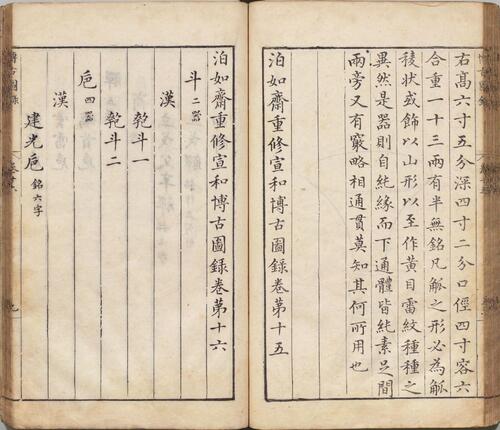 右高六寸五分深四寸二分口徑四寸容六
合重一十三兩有半無銘凡觚之形必為觚
稜状或飾以山形以至作黄目雷紋種種之
異然是器則自純緣而下通體皆純素足間
兩旁又有竅略相通貫莫知其何所用也
泊如齋重修宣和博古圖錄卷第十五
泊如齋重修宣和博古圖錄卷第十六
斗二器
漢
匏斗一
匏斗二
巵四器
漢
建光巵銘六字